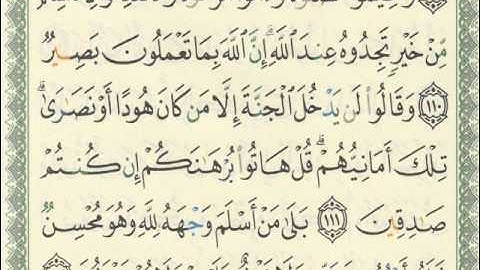 مِّنْ خَيْرٍ تَجِدُوهُ عِندَ اللَّهِ ۗ إِنَّ اللَّهَ بِمَا تَعْمَلُونَ بَصِيرٌ
﴿١١٠﴾ وَقَالُوا لَن يَدْخُلَ الْجَنَّةَ إِلَّا مَن كَانَ هُودًا أَوْ نَصَارَىٰ ۗ
تِلْكَ أَمَانِيُّهُمْ ۗ قُلْ هَاتُوا بُرْهَانَكُمْ إِن كُنتُمْ
صَادِقِينَ ﴿١١١﴾ بَلَىٰ مَنْ أَسْلَمَ وَجْهَهُ لِلَّهِ وَهُوَ مُحْسِنٌ